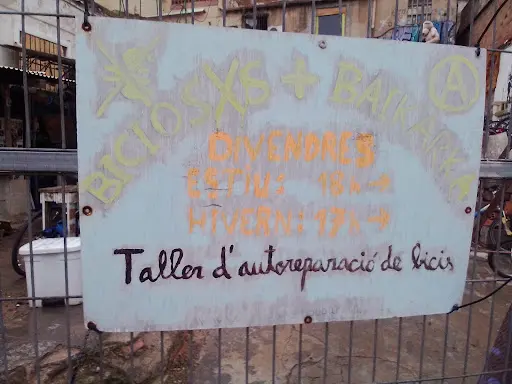 BICIOSXS + BAIKARKA
DIVENDRES
ESTIU: 18h→
HIVERN: 17h→
Taller d'autoreparació de bicis